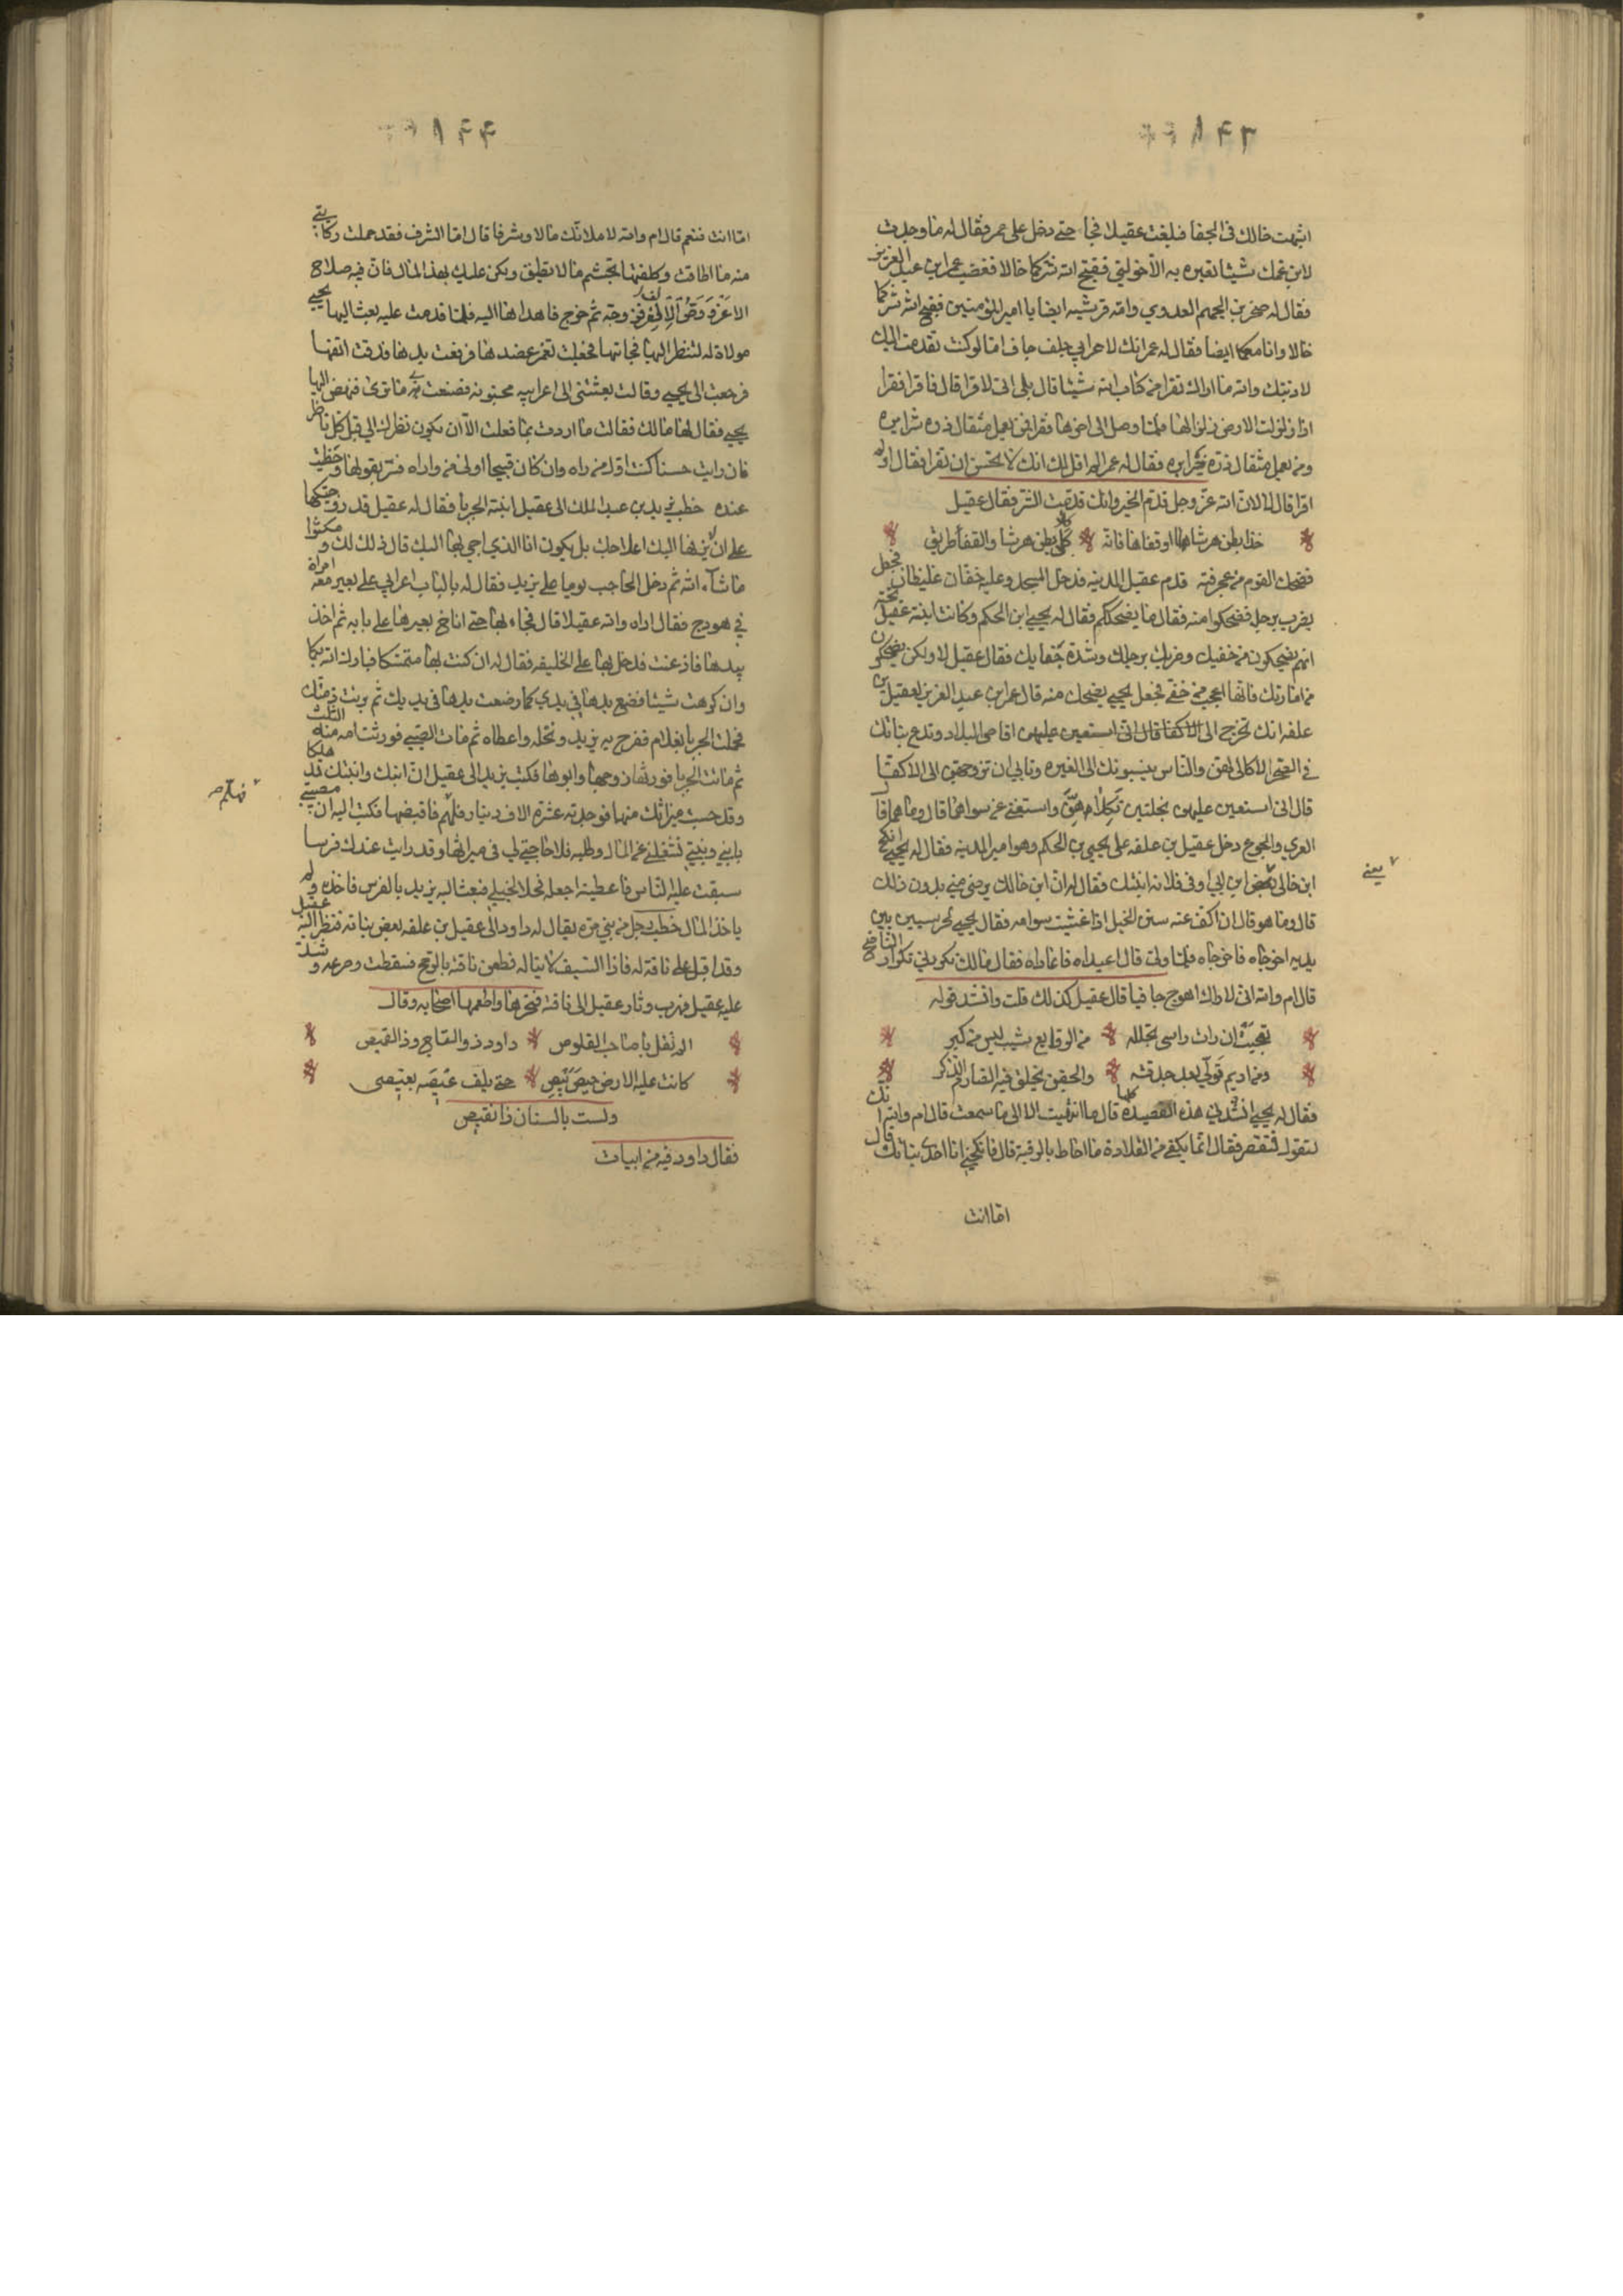 اشبهت خالك في الجفا فبلغت عقيلا فجا حتى دخل على عمر فقال له ما وجدت
لابن عمك شيئا تعيره به الا خولتي فقبح الله شركما خالا فغضب عمر ابن عبد العزيز
فقال له صخر بن الجهم العدوي وامه قرشيه ايضا يا امير المؤمنين فقبح الله شركما
خالا وانا معكما ايضا فقال له عمر انك لاعرابي جلف جاف اما لو كنت تقدمت اليك
لادبتك والله ما اراك تقرا من كتاب الله شيئا قال بلى اني لاقرا قال فاقرا فقرا
اذا زلزلت الارض زلزالها فلما وصل الى اخرها فقرا فمن يعمل مثقال ذرة شرا يره
ومن يعمل مثقال ذرة خيرا يره فقال له عمر الم اقل لك انك لا تحسن ان تقرا فقال اولم
اقرا قال لا لان الله عز وجل قدم الخير وانك قدمت الشر فقال عقيل
خذا بطن هرشا او قفاها فانه كلا بطن هرشا والقفا طريق
فضحك القوم من عجرفته قدم عقيل المدينه فدخل المسجد وعليه خفان غليظان فجعل
يضرب برجله فضحكوا منه فقال ما يضحككم فقال له يحيى ابن الحكم وكانت ابنة عقيل تحته
انهم يضحكون من خفيك وضربك برجلك وشدة جفايك فقال عقيل لا ولكن يضحكون
من امارتك فانها اعجب من خفي فجعل يحيى يضحك منه قال عمر ابن عبد العزيز لعقيل بن
علفه انك تخرج الى اقاصي البلاد وتدع بناتك
في الصحرا لا كالى لهن والناس ينسبونك الى الغيره وتابى ان تزوجهن الى الاكفا
قال اني استعين عليهن بخلتين تكلانهن واستغني عن سواهما قال وما هما قال
العري والجوع دخل عقيل بن علفه على يحيى بن الحكم وهو امير المدينه فقال له يحيى انكح
ابن خالى يعني ابن اوفى فلانه ابنتك فقال له ان ابن خالك يرضى مني بدون ذلك
قال وما هو قال ان اكف عنه سنن الخيل اذا غشيت سوامه فقال يحيى لحرسيين بين
يديه اخرجاه فاخرجاه فلما ولى قال اعيداه فاعاداه فقال مالك تكرني تكرار الناضح
قال ام والله اني لاراك اهوج جافيا قال عقيل كذلك قلت وانشد قوله
تعجبت ان رات راسي تجلله من الروايع شيب ليس من كبر
ومن اديم تولى بعد جدته والجفن يخلق فيه الصارم الذكر
فقال له يحيى انشدني هذه القصيده كلها قال ما انتهيت الا الى ما سمعت قال ام والله انك
لتقول فتقصر فقال انما يكفي من القلادة ما احاط بالرقبة قال فانكحني انا احدى بناتك قال
اما انت
يعني
اما انت فنعم قال ام والله لاملانك مالا وشرفا قال اما الشرف فقد حملت ركائبي
منه ما اطاقت وكلفتها تجشم ما لا تطيق ولكن عليك بهذا المال فان فيه صلاح
زوجه ثم خرج فاهداها اليه فلما قدمت عليه بعث اليها يحيى
مولاة له لتنظر اليها فجاتها فجعلت تغمز عضدها فرفعت يدها فدقت انفها
فرجعت الى يحيى وقالت بعثتني الى اعرابيه مجنونه فصنعت بي ما ترى فنهض اليها
يحيى فقال لها مالك فقالت ما اردت بما فعلت الا ان يكون نظرك الي قبل كل ناظر
فان رايت حسنا كنت اول من راه وان كان قبيحا اولى من واراه فسر بقولها وحظيت
عنده خطب يزيد بن عبد الملك الى عقيل ابنته الجربا فقال له عقيل قد زوجتكها
على ان لا يزفها اليك اعلاجك بل يكون انا الذي اجي بها اليك قال ذلك لك ومكثوا
ما شاء الله ثم دخل الحاجب يوما على يزيد فقال له بالباب اعرابي على بعير معه امراة
في هودج فقال اراه والله عقيلا قال فجاء بها حتى اناخ بعيرها على بابه ثم اخذ
بيدها فاذعنت فدخل بها على الخليفه فقال له ان كنت بها متمسكا فبارك الله لكما
وان كرهت شيئا فضع يدها في يدي كما وضعت يدها في يديك ثم برئت ذمتك
فحملت الجربا بغلام ففرح به يزيد ونحله واعطاه ثم مات الصبي فورثت امه منه الثلث
ثم ماتت الجربا فورثها زوجها وابوها فكتب يزيد الى عقيل ان ابنك وابنتك قد هلكا
وقد حسبت ميراثك منهما فوجدته عشرة الاف دينار فهلم فاقبضها فكتب اليه ان مصيبتي
بابني وبنيتي تشغلني عن المال وطلبه فلا حاجة لي في ميراثها وقد رايت عندك فرسا
سبقت عليه الناس فاعطينه اجعله فحلا لخيلي فبعث اليه يزيد بالفرس فاخذه ولم
ياخذ المال خطب رجل من بني مره يقال له داود الى عقيل بن علفه بعض بناته فنظر اليه عقيل
وقد اقبل على ناقة له فاذا السيف لا يناله فطعن ناقته بالرمح فسقطت وصرعه وشد
عليه عقيل فهرب وثار عقيل الى ناقته فنحرها واطعمها اصحابه وقال
الم تقل يا صاحب القلوص داود ذو الساج وذا القميص
كانت عليه الارض حيص بيص حتى يلف عيصه بعيصي
ولست بالسنان ذا نقيص
فقال داود فيه من ابيات